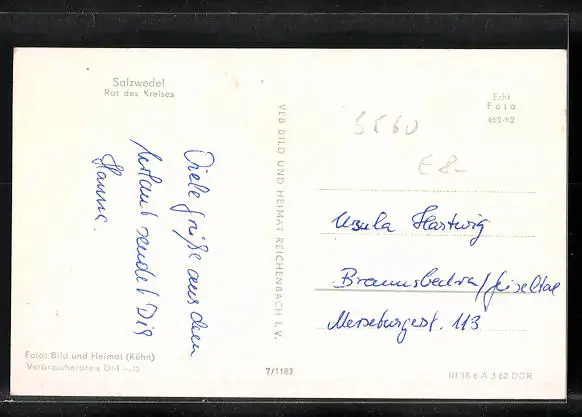 Salzwedel
Rat des Kreises
Viele grüße aus dem
Urlaub sendet Dir
Hanne.
Foto: Bild und Heimat (Kühn)
Verbraucherpreis DM -,15
VEB BILD UND HEIMAT REICHENBACH I. V.
7/1183
Echt
Foto
462/62
€ 8-
Ursula Hartwig
Braunsbedra/Geiseltal
Merseburgerst. 113
III 18 6 A 3 62 DDR